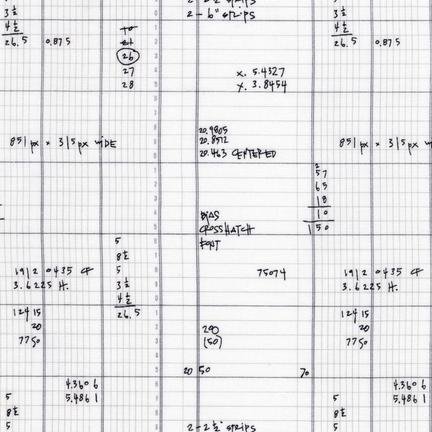 2 - 6" strips
3 ½
4 ½
26.5 0.875
26
27
28
x. 5.4327
y. 3.8454
3 ½
4 ½
26.5 0.875
851 px × 315 px WIDE
20.9805
20.8572
20.463 CENTERED
851 px × 315 px W
2
57
65
18
10
150
BIAS
CROSSHATCH
FONT
5
8 ½
5
3 ½
4 ½
26.5
1912 0435 CF
3.6225 H.
75074
1912 0435 CF
3.6225 H.
124 15
20
7750
200
(50)
124 15
20
7750
20 50 70
4.3606
5.4861
5
8 ½
5
4.3606
5.4861
5
8 ½
5
2 - 2 ½" strips